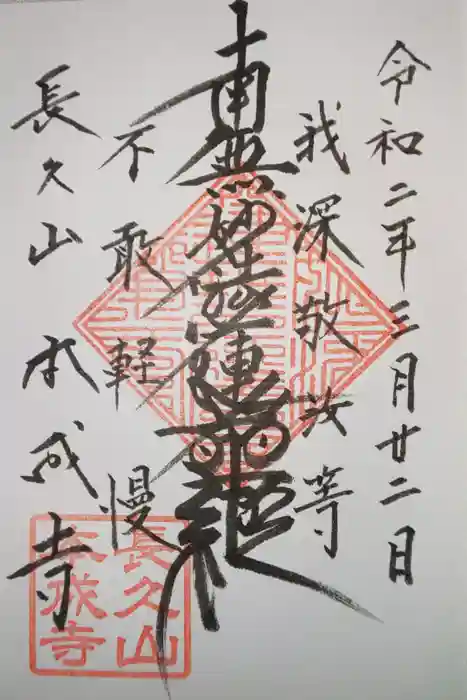 令和二年三月廿二日
我深敬汝等
南無妙法蓮華経
不敢軽慢
長久山本成寺
長久山
本成寺